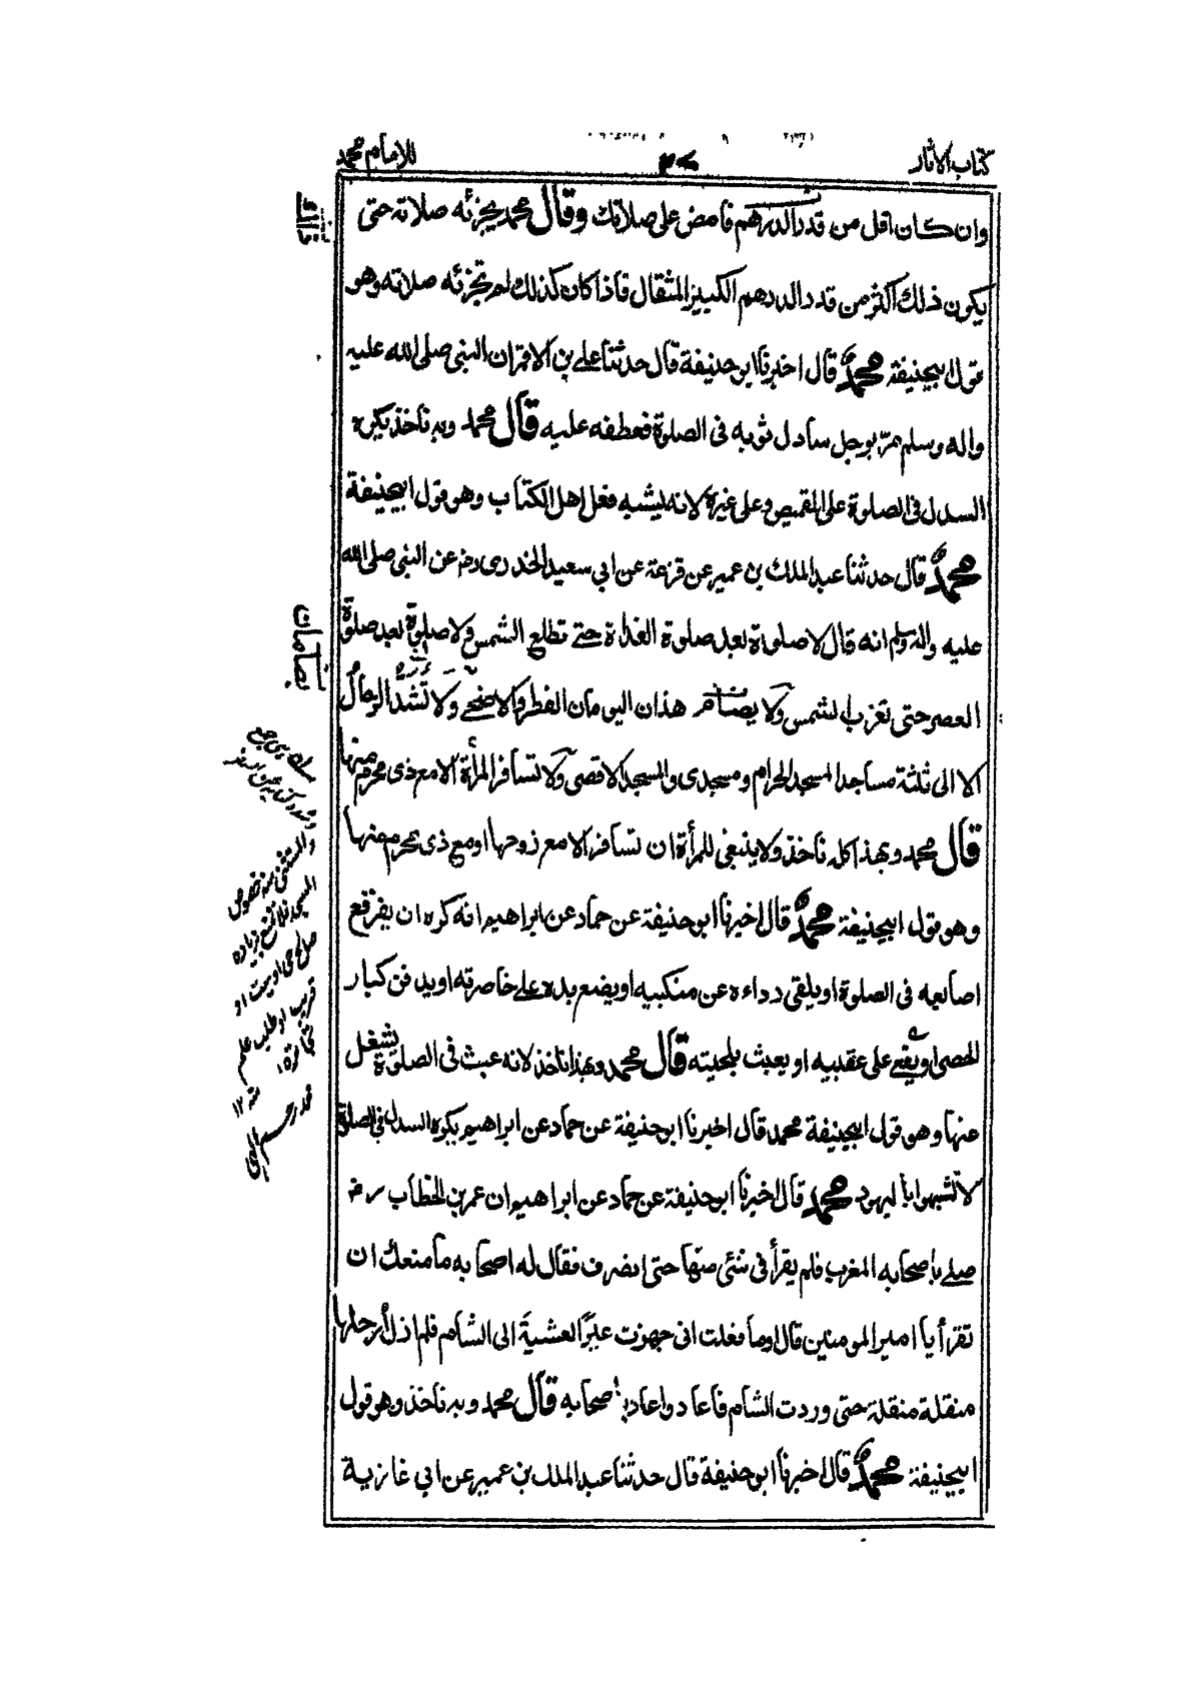 كتاب الاثار
٣٧
للامام محمد
وان كان اقل من قدر الدرهم فامض على صلاتك وقال محمد يجزئه صلاته حتى
يكون ذلك اكثر من قدر الدرهم الكبير المثقال فاذا كان كذلك لم تجزئه صلاته وهو
قول ابيحنيفة محمد قال اخبرنا ابو حنيفة قال حدثنا علي بن الاقمر ان النبى صلى الله عليه
واله وسلم مر برجل سادل ثوبه فى الصلوة فعطفه عليه قال محمد وبه ناخذ يكره
السدل فى الصلوة على القميص وعلى غيره لانه يشبه فعل اهل الكتاب وهو قول ابيحنيفة
محمد قال حدثنا عبد الملك بن عمير عن قزعة عن ابي سعيد الخدرى رض عن النبى صلى الله
عليه واله وسلم انه قال لا صلوة بعد صلوة الغداة حتى تطلع الشمس ولا صلوة بعد صلوة
العصر حتى تغرب الشمس ولا يصام هذان اليومان الفطر والاضحى ولا تشد الرحال
الا الى ثلثة مساجد المسجد الحرام ومسجدى والمسجد الاقصى ولا تسافر المرأة الا مع ذى محرم منها
قال محمد وبهذا كله ناخذ ولا ينبغى للمرأة ان تسافر الا مع زوجها او مع ذى محرم منها
وهو قول ابيحنيفة محمد قال اخبرنا ابو حنيفة عن حماد عن ابراهيم انه كره ان يفرقع
اصابعه فى الصلوة او يلقى رداءه عن منكبيه او يضع يده على خاصرته او يدفن كبار
الحصى او يقعى على عقبيه او يعبث بلحيته قال محمد وبهذا ناخذ لانه عبث فى الصلوة يشغل
عنها وهو قول ابيحنيفة محمد قال اخبرنا ابو حنيفة عن حماد عن ابراهيم يكره السدل فى الصلوة
لا تشبهوا باليهود محمد قال اخبرنا ابو حنيفة عن حماد عن ابراهيم ان عمر بن الخطاب رض
صلى باصحابه المغرب فلم يقرأ فى شئى منها حتى انصرف فقال له اصحابه ما منعك ان
تقرأ يا امير المومنين قال اوما فعلت انى جهزت عيرا العشية الى الشام فلم ازل ارحلها
منقلة منقلة حتى وردت الشام فاعاد واعاد باصحابه قال محمد وبه ناخذ وهو قول
ابيحنيفة محمد قال اخبرنا ابو حنيفة قال حدثنا عبد الملك بن عمير عن ابي غازية
يصامان